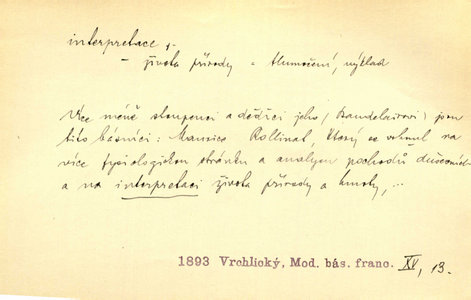 interpretace, f.
– života přírody = tlumočení, výklad
Více méně stoupenci a dědici jeho (Baudelairovi) jsou
tito básníci: Maurice Rollinat, který se vrhnul na
více fysiologickou stránku a analysu pochodů duševních
a na interpretaci života přírody a hmoty, ...
1893 Vrchlický, Mod. bás. franc. XV, 13.